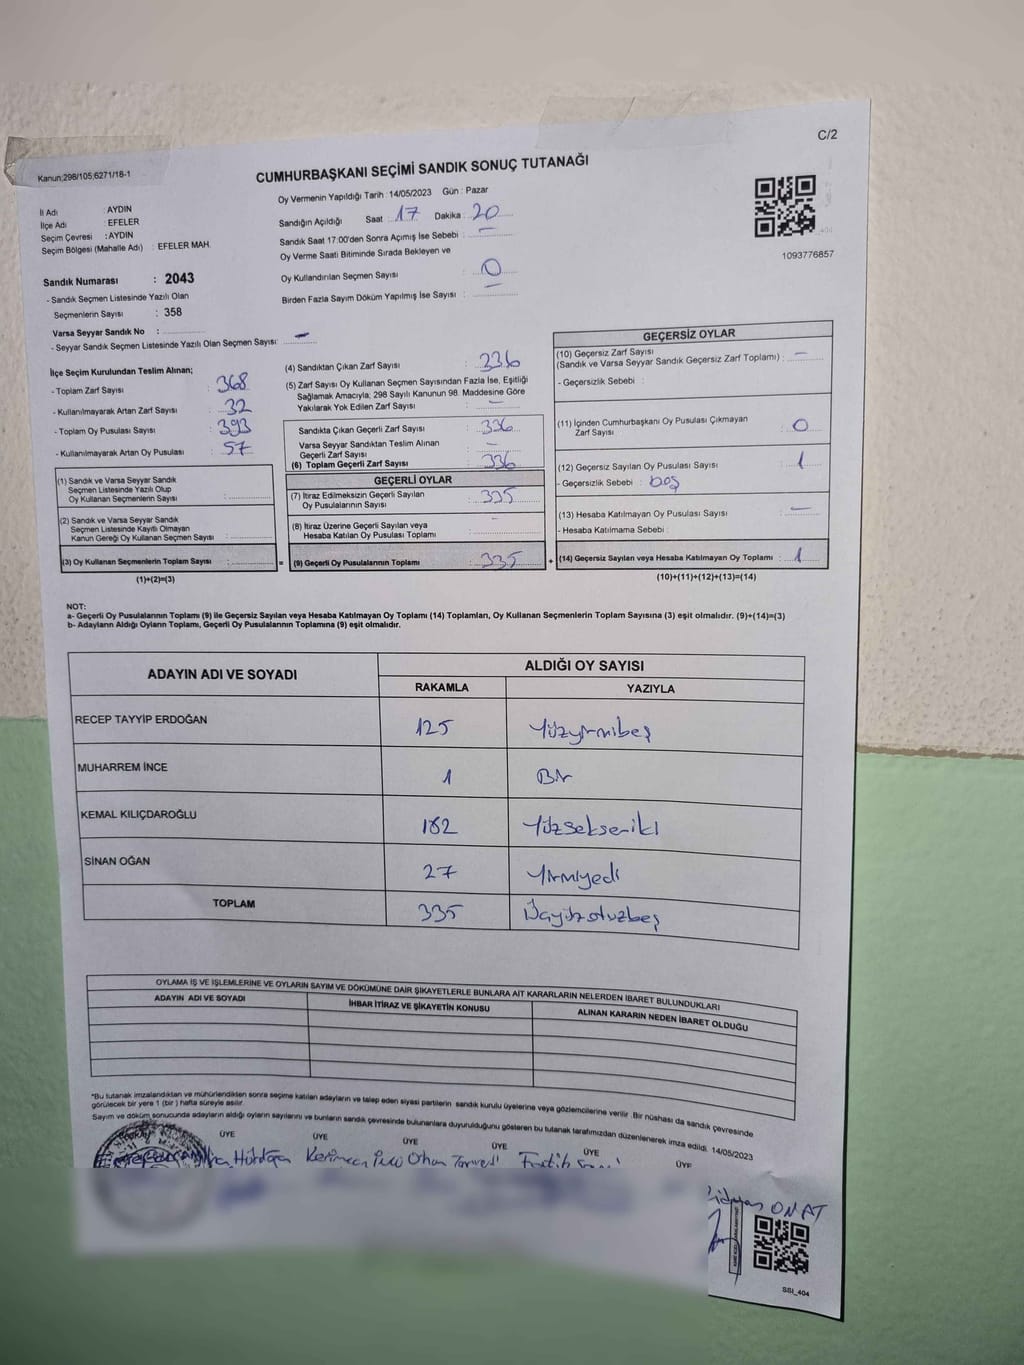 C/2
Kanun;298/105,6271/18-1
CUMHURBAŞKANI SEÇİMİ SANDIK SONUÇ TUTANAĞI
Oy Vermenin Yapıldığı Tarih : 14/05/2023 Gün : Pazar
İl Adı : AYDIN
İlçe Adı : EFELER
Seçim Çevresi : AYDIN
Seçim Bölgesi (Mahalle Adı) : EFELER MAH.
Sandığın Açıldığı Saat : 17 Dakika : 20
Sandık Saat 17:00'den Sonra Açımış İse Sebebi : —
Oy Verme Saati Bitiminde Sırada Bekleyen ve
Oy Kullandırılan Seçmen Sayısı : 0
Birden Fazla Sayım Döküm Yapılmış İse Sayısı : —
1093776857
Sandık Numarası : 2043
- Sandık Seçmen Listesinde Yazılı Olan
Seçmenlerin Sayısı : 358
Varsa Seyyar Sandık No :
- Seyyar Sandık Seçmen Listesinde Yazılı Olan Seçmen Sayısı: —
İlçe Seçim Kurulundan Teslim Alınan;
- Toplam Zarf Sayısı : 368
- Kullanılmayarak Artan Zarf Sayısı : 32
- Toplam Oy Pusulası Sayısı : 393
- Kullanılmayarak Artan Oy Pusulası : 57
(1) Sandık ve Varsa Seyyar Sandık
Seçmen Listesinde Yazılı Olup
Oy Kullanan Seçmenlerin Sayısı :
(2) Sandık ve Varsa Seyyar Sandık
Seçmen Listesinde Kayıtlı Olmayan
Kanun Gereği Oy Kullanan Seçmen Sayısı :
(3) Oy Kullanan Seçmenlerin Toplam Sayısı :
(1)+(2)=(3)
(4) Sandıktan Çıkan Zarf Sayısı : 336
(5) Zarf Sayısı Oy Kullanan Seçmen Sayısından Fazla İse, Eşitliği
Sağlamak Amacıyla; 298 Sayılı Kanunun 98. Maddesine Göre
Yakılarak Yok Edilen Zarf Sayısı : —
Sandıkta Çıkan Geçerli Zarf Sayısı : 336
Varsa Seyyar Sandıktan Teslim Alınan
Geçerli Zarf Sayısı : —
(6) Toplam Geçerli Zarf Sayısı : 336
GEÇERLİ OYLAR
(7) İtiraz Edilmeksizin Geçerli Sayılan
Oy Pusulasının Sayısı : 335
(8) İtiraz Üzerine Geçerli Sayılan veya
Hesaba Katılan Oy Pusulası Toplamı : -
= (9) Geçerli Oy Pusulalarının Toplamı : 335
GEÇERSİZ OYLAR
(10) Geçersiz Zarf Sayısı
(Sandık ve Varsa Seyyar Sandık Geçersiz Zarf Toplamı) : —
- Geçersizlik Sebebi :
(11) İçinden Cumhurbaşkanı Oy Pusulası Çıkmayan
Zarf Sayısı : 0
(12) Geçersiz Sayılan Oy Pusulası Sayısı : 1
- Geçersizlik Sebebi : boş
(13) Hesaba Katılmayan Oy Pusulası Sayısı : —
- Hesaba Katılmama Sebebi :
+ (14) Geçersiz Sayılan veya Hesaba Katılmayan Oy Toplamı : 1
(10)+(11)+(12)+(13)=(14)
NOT:
a- Geçerli Oy Pusulalarının Toplamı (9) ile Geçersiz Sayılan veya Hesaba Katılmayan Oy Toplamı (14) Toplamları, Oy Kullanan Seçmenlerin Toplam Sayısına (3) eşit olmalıdır. (9)+(14)=(3)
b- Adayların Aldığı Oyların Toplamı, Geçerli Oy Pusulalarının Toplamına (9) eşit olmalıdır.
ADAYIN ADI VE SOYADI ALDIĞI OY SAYISI
RAKAMLA YAZIYLA
RECEP TAYYIP ERDOĞAN 125 Yüzyirmibeş
MUHARREM İNCE 1 Bir
KEMAL KILIÇDAROĞLU 182 Yüzsekseniki
SİNAN OĞAN 27 Yirmiyedi
TOPLAM 335 Üçyüzotuzbeş
OYLAMA İŞ VE İŞLEMLERİNE VE OYLARIN SAYIM VE DÖKÜMÜNE DAİR ŞİKAYETLERLE BUNLARA AİT KARARLARIN NELERDEN İBARET BULUNDUKLARI
ADAYIN ADI VE SOYADI İHBAR İTİRAZ VE ŞİKAYETİN KONUSU ALINAN KARARIN NEDEN İBARET OLDUĞU
"Bu tutanak imzalandıktan ve mühürlendikten sonra seçime katılan adayların ve talep eden siyasi partilerin sandık kurulu üyelerine veya gözlemcilerine verilir. Bir nüshası da sandık çevresinde
görülecek bir yere 1 (bir ) hafta süreyle asılır.
Sayım ve döküm sonucunda adayların aldığı oyların sayılarını ve bunların sandık çevresinde bulunanlara duyurulduğunu gösteren bu tutanak tarafımızdan düzenlenerek imza edildi. 14/05/2023
ÜYE ÜYE ÜYE ÜYE ÜYE ÜYE
Orhan Fatih
ONAT
SSI_404